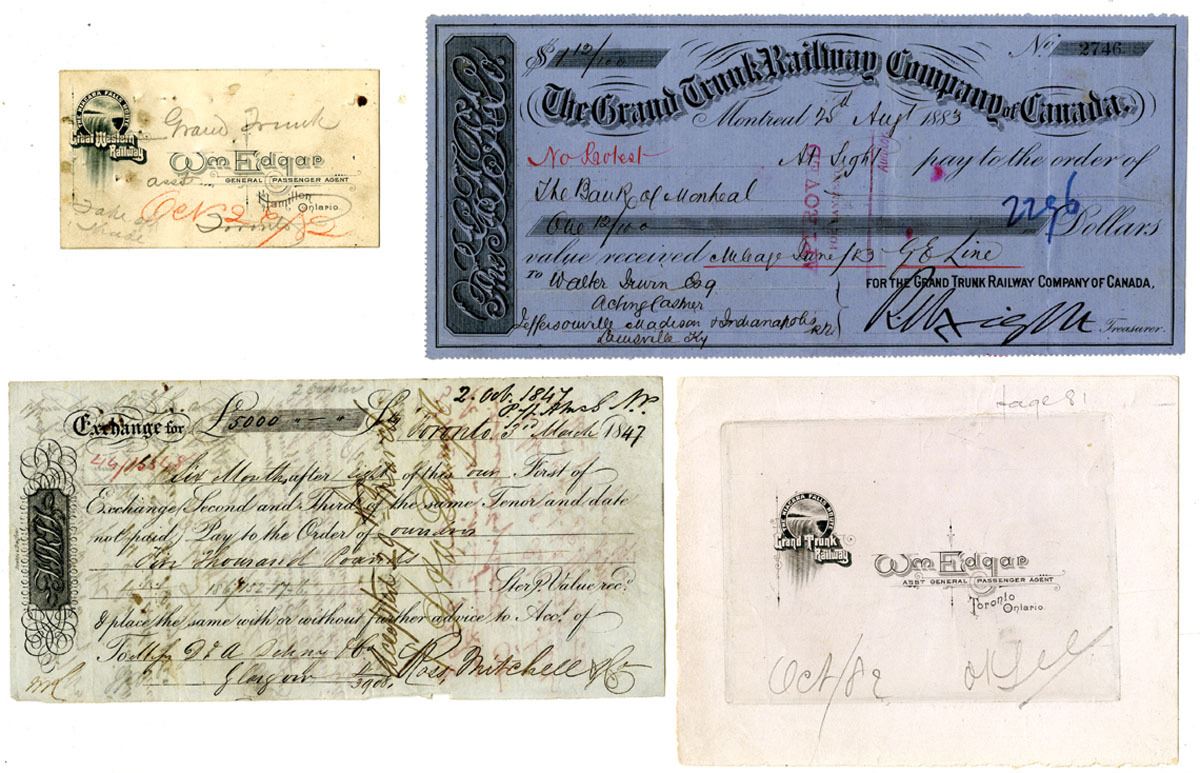 THE NIAGARA FALLS ROUTE
Great Western
Railway
Grand Trunk
Wm Edgar
asst
GENERAL PASSENGER AGENT
Hamilton
Ontario.
Toronto
$1 12/100
No. 2746
The Grand Trunk Railway Company of Canada.
Montreal Augt 1883
No Protest
At Sight pay to the order of
The Bank of Montreal
2296
One 12/100 Dollars
APPROVED
value received Mileage June/83 G.E Line
TO Walter Irwin Esq
Acting Cashier
Jeffersonville Madison & Indianapolis RR
Louisville Ky
FOR THE GRAND TRUNK RAILWAY COMPANY OF CANADA,
Treasurer.
2 Oct. 1847
Exchange for £5000
Toronto 3rd March 1847
Six Months after sight of this our First of
Exchange Second and Third of the same Tenor and date
not paid, Pay to the Order of
Five Thousand Pounds
Sterg. Value recd.
& place the same with or without further advice to Acct. of
To
Glasgow
Ross Mitchell & Co
Accepted
THE NIAGARA FALLS ROUTE
Grand Trunk
Railway
Wm Edgar
ASST GENERAL PASSENGER AGENT
Toronto
Ontario.
Oct/82